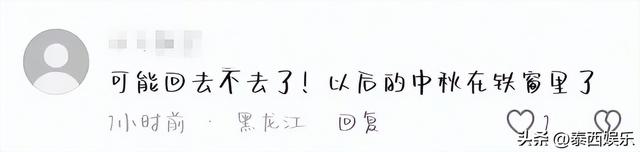 可能回去不去了！以后的中秋在铁窗里了
7小时前 · 黑龙江 回复
头条 @泰西娱乐